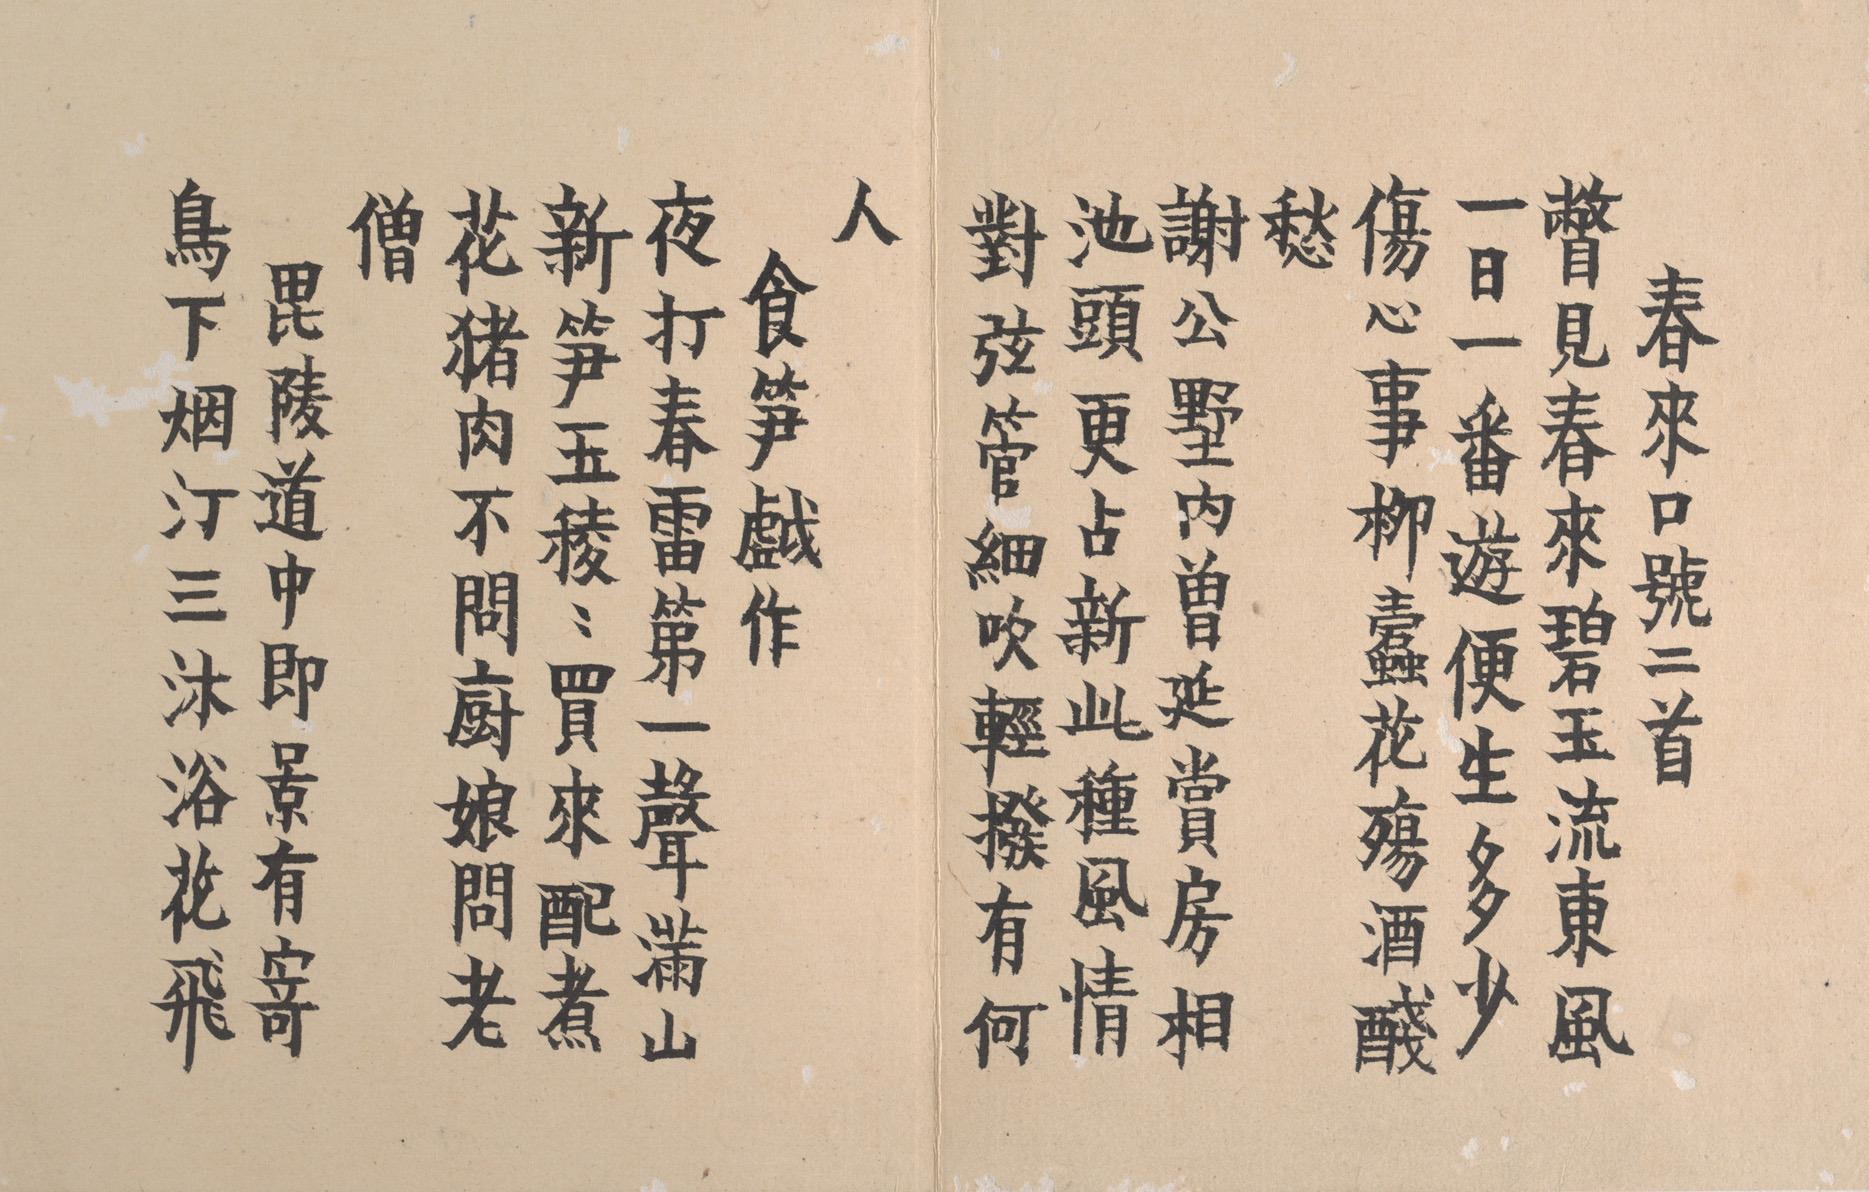 春來口號二首
瞥見春來碧玉流東風
一日一番遊便生多少
傷心事柳蠹花殤酒醆
愁
謝公墅内曾延賞房相
池頭更占新此種風情
對弦管細吹輕撥有何
人
食笋戯作
夜打春雷第一聲滿山
新笋玉稜〻買來配煮
花猪肉不問厨娘問老
僧
毘陵道中即景有寄
鳥下烟汀三沐浴花飛